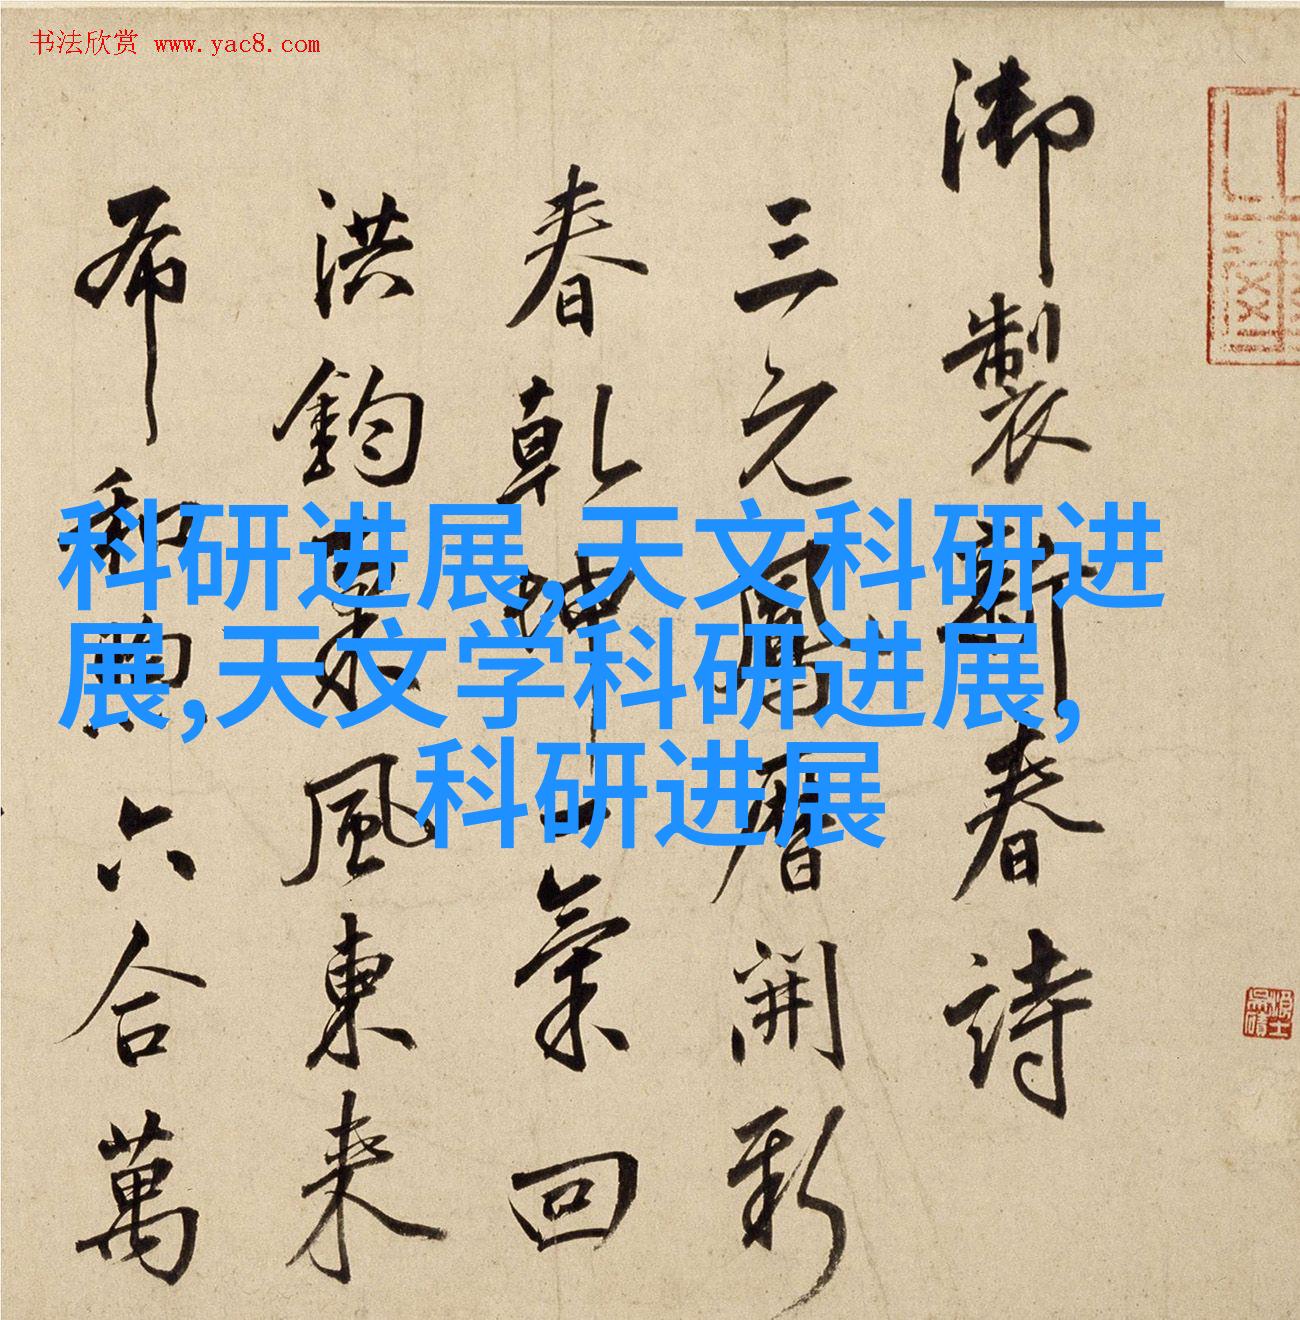 书法欣赏 www.yac8.com
御製新春詩
三元鳳曆開新
春乾坤一氣回
洪鈞風東来
布和六合萬
科研进展,天文科研进
展,天文学科研进展,
科研进展